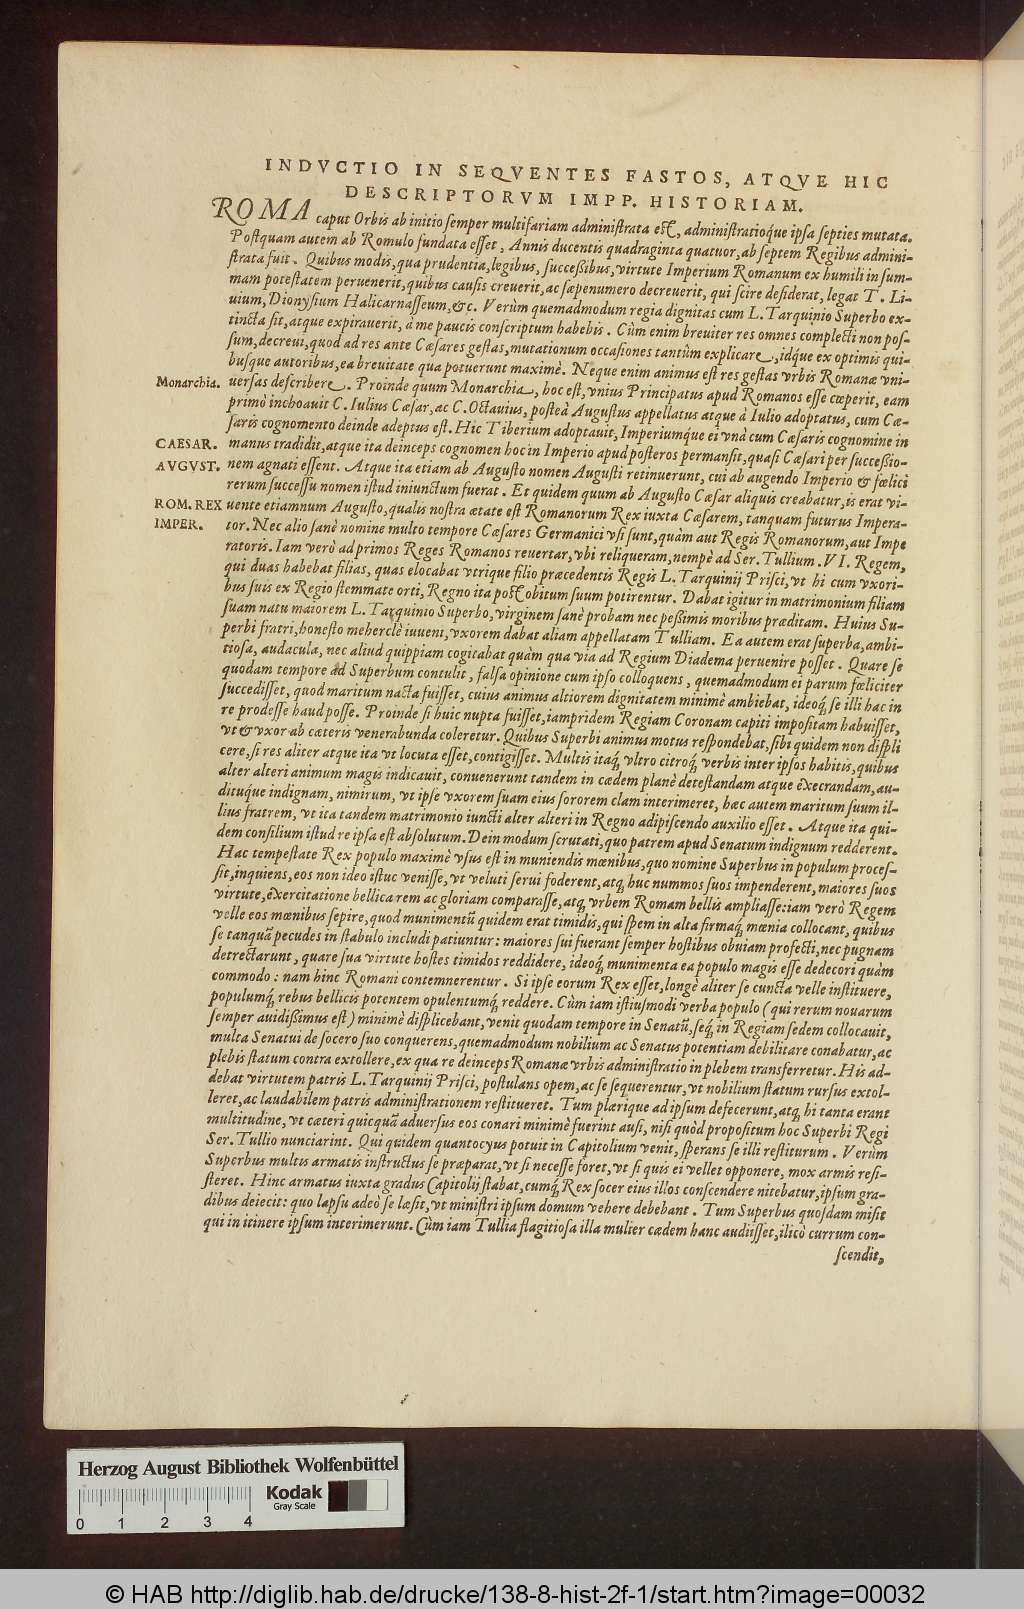 INDVCTIO IN SEQVENTES FASTOS, ATQVE HIC
DESCRIPTORVM IMPP. HISTORIAM.
ROMA caput Orbis ab initio ſemper multifariam adminiſtrata eſt, adminiſtratioq́ue ipſa ſepties mutata.
Poſtquam autem ab Romulo fundata eſſet, Annis ducentis quadraginta quatuor, ab ſeptem Regibus admini-
ſtrata fuit. Quibus modis, qua prudentia, legibus, ſucceßibus, virtute Imperium Romanum ex humili in ſum-
mam poteſtatem peruenerit, quibus cauſis creuerit, ac ſæpenumero decreuerit, qui ſcire deſiderat, legat T. Li-
uium, Dionyſium Halicarnaſſeum, &c. Verùm quemadmodum regia dignitas cum L. Tarquinio Superbo ex-
tincta ſit, atque expirauerit, à me paucis conſcriptum habebis. Cùm enim breuiter res omnes complecti non poſ-
ſum, decreui, quod ad res ante Cæſares geſtas, mutationum occaſiones tantùm explicare, idq́ue ex optimis qui-
buſque autoribus, ea breuitate qua potuerunt maximè. Neque enim animus eſt res geſtas vrbis Romanæ vni-
Monarchia. uerſas deſcribere. Proinde quum Monarchia, hoc eſt, vnius Principatus apud Romanos eſſe cœperit, eam
primò inchoauit C. Iulius Cæſar, ac C. Octauius, poſteà Auguſtus appellatus atque à Iulio adoptatus, cum Cæ-
ſaris cognomento deinde adeptus eſt. Hic Tiberium adoptauit, Imperiumq́ue ei vnà cum Cæſaris cognomine in
CAESAR. manus tradidit, atque ita deinceps cognomen hoc in Imperio apud poſteros permanſit, quaſi Cæſari per ſucceßio-
AVGVST. nem agnati eſſent. Atque ita etiam ab Auguſto nomen Auguſti retinuerunt, cui ab augendo Imperio & fœlici
rerum ſucceſſu nomen iſtud iniunctum fuerat. Et quidem quum ab Auguſto Cæſar aliquis creabatur, is erat vi-
ROM. REX uente etiamnum Auguſto, qualis noſtra ætate eſt Romanorum Rex iuxta Cæſarem, tanquam futurus Impera-
IMPER. tor. Nec alio ſanè nomine multo tempore Cæſares Germanici vſi ſunt, quàm aut Regis Romanorum, aut Impe
ratoris. Iam verò ad primos Reges Romanos reuertar, vbi reliqueram, nempè ad Ser. Tullium. VI. Regem,
qui duas habebat filias, quas elocabat vtrique filio præcedentis Regis L. Tarquinij Priſci, vt hi cum vxori-
bus ſuis ex Regio ſtemmate orti, Regno ita poſt obitum ſuum potirentur. Dabat igitur in matrimonium filiam
ſuam natu maiorem L. Tarquinio Superbo, virginem ſanè probam nec peßimis moribus præditam. Huius Su-
perbi fratri, honeſto meherclè iuueni, vxorem dabat aliam appellatam Tulliam. Ea autem erat ſuperba, ambi-
tioſa, audacula, nec aliud quippiam cogitabat quàm qua via ad Regium Diadema peruenire poſſet. Quare ſe
quodam tempore ad Superbum contulit, falſa opinione cum ipſo colloquens, quemadmodum ei parum fœliciter
ſuccediſſet, quod maritum nacta fuiſſet, cuius animus altiorem dignitatem minimè ambiebat, ideoq́; ſe illi hac in
re prodeſſe haud poſſe. Proinde ſi huic nupta fuiſſet, iampridem Regiam Coronam capiti impoſitam habuiſſet,
vt & vxor ab cæteris venerabunda coleretur. Quibus Superbi animus motus reſpondebat, ſibi quidem non diſpli
cere, ſi res aliter atque ita vt locuta eſſet, contigiſſet. Multis itaq́; vltro citroq́; verbis inter ipſos habitis, quibus
alter alteri animum magis indicauit, conuenerunt tandem in cædem planè deteſtandam atque execrandam, au-
dituq́ue indignam, nimirum, vt ipſe vxorem ſuam eius ſororem clam interimeret, hæc autem maritum ſuum il-
lius fratrem, vt ita tandem matrimonio iuncti alter alteri in Regno adipiſcendo auxilio eſſet. Atque ita qui-
dem conſilium iſtud re ipſa eſt abſolutum. Dein modum ſcrutati, quo patrem apud Senatum indignum redderent.
Hac tempeſtate Rex populo maximè vſus eſt in muniendis mœnibus, quo nomine Superbus in populum proceſ-
ſit, inquiens, eos non ideo iſtuc veniſſe, vt veluti ſerui foderent, atq́; huc nummos ſuos impenderent, maiores ſuos
virtute, exercitatione bellica rem ac gloriam comparaſſe, atq́; vrbem Romam bellis ampliaſſe: iam verò Regem
velle eos mœnibus ſepire, quod munimentū quidem erat timidis, qui ſpem in alta firmaq́; mœnia collocant, quibus
ſe tanquā pecudes in ſtabulo includi patiuntur: maiores ſui fuerant ſemper hoſtibus obuiam profecti, nec pugnam
detrectarunt, quare ſua virtute hoſtes timidos reddidere, ideoq́; munimenta ea populo magis eſſe dedecori quàm
commodo: nam hinc Romani contemnerentur. Si ipſe eorum Rex eſſet, longè aliter ſe cuncta velle inſtituere,
populumq́; rebus bellicis potentem opulentumq́; reddere. Cùm iam iſtiuſmodi verba populo (qui rerum nouarum
ſemper auidißimus eſt) minimè diſplicebant, venit quodam tempore in Senatū, ſeq́; in Regiam ſedem collocauit,
multa Senatui de ſocero ſuo conquerens, quemadmodum nobilium ac Senatus potentiam debilitare conabatur, ac
plebis ſtatum contra extollere, ex qua re deinceps Romanæ vrbis adminiſtratio in plebem transferretur. His ad-
debat virtutem patris L. Tarquinij Priſci, poſtulans opem, ac ſe ſequerentur, vt nobilium ſtatum rurſus extol-
leret, ac laudabilem patris adminiſtrationem reſtitueret. Tum plærique ad ipſum defecerunt, atq́; hi tanta erant
multitudine, vt cæteri quicquā aduerſus eos conari minimè fuerint auſi, niſi quòd propoſitum hoc Superbi Regi
Ser. Tullio nunciarint. Qui quidem quantocyus potuit in Capitolium venit, ſperans ſe illi reſtiturum. Verùm
Superbus multis armatis inſtructus ſe præparat, vt ſi neceſſe foret, vt ſi quis ei vellet opponere, mox armis reſi-
ſteret. Hinc armatus iuxta gradus Capitolij ſtabat, cumq́; Rex ſocer eius illos conſcendere nitebatur, ipſum gra-
dibus deiecit: quo lapſu adeò ſe læſit, vt miniſtri ipſum domum vehere debebant. Tum Superbus quoſdam miſit
qui in itinere ipſum interimerunt. Cùm iam Tullia flagitioſa illa mulier cædem hanc audiiſſet, ilicò currum con-
ſcendit,
Herzog August Bibliothek Wolfenbüttel
Kodak
Gray Scale
0 1 2 3 4
© HAB http://diglib.hab.de/drucke/138-8-hist-2f-1/start.htm?image=00032